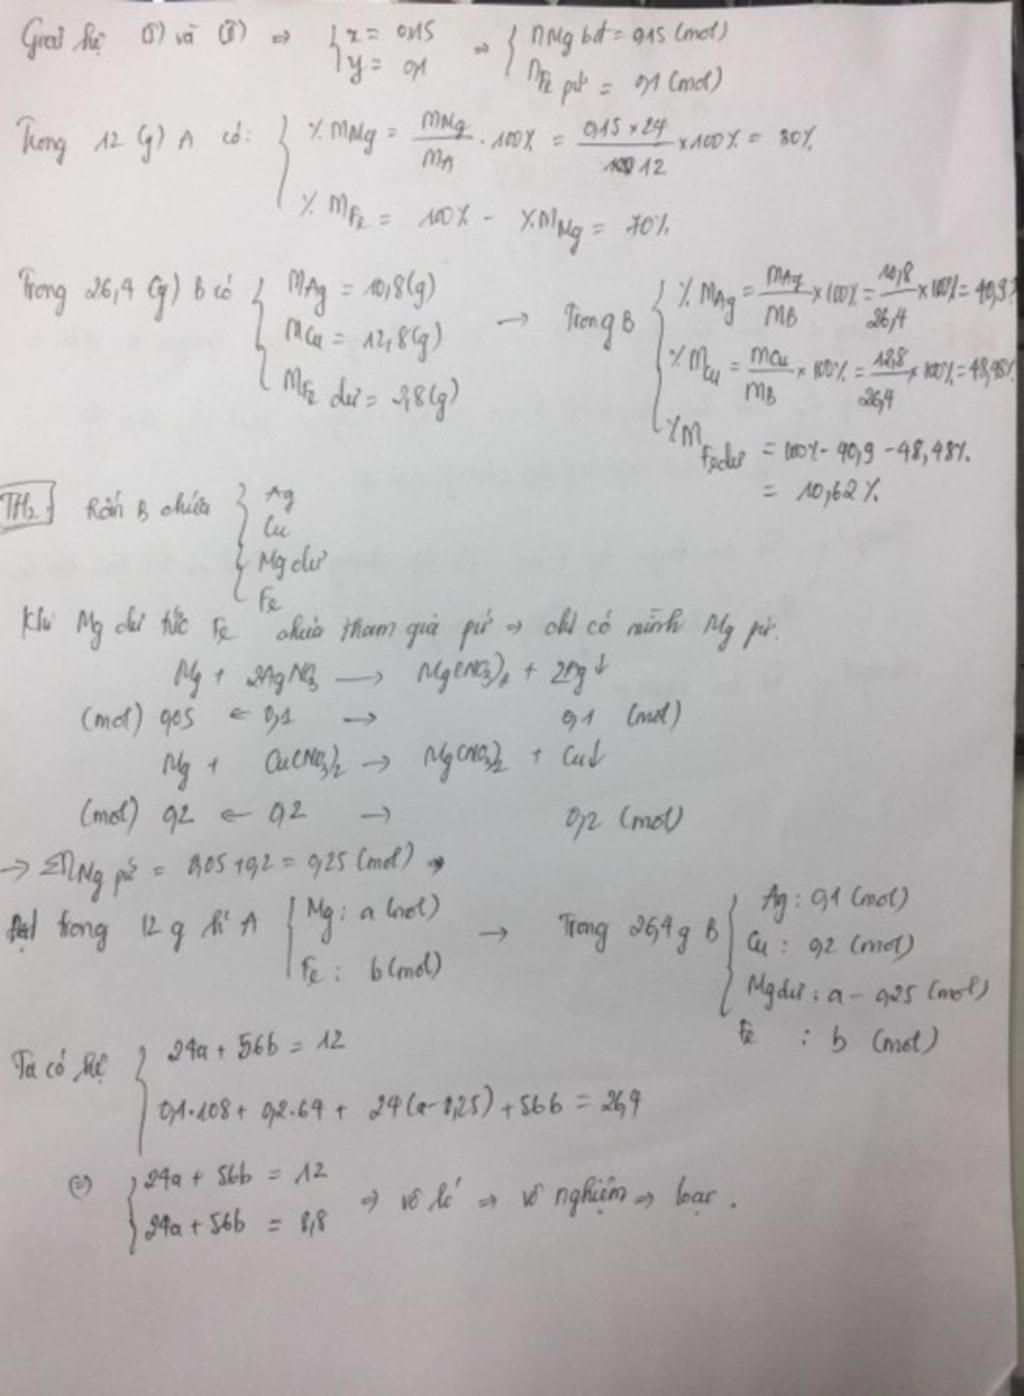 Giải hệ (1) và (2) => { x = 0,15 => { nMg bđ = 0,15 (mol)
y = 0,1 nFe pứ = 0,1 (mol)
Trong 12 (g) A có: { % mMg = mMg/mA . 100% = 0,15 x 24/12 x 100% = 30%
% mFe = 100% - % mMg = 70%
Trong 26,4 (g) B có { mAg = 10,8 (g)
mCu = 12,8 (g)
mFe dư = 2,8 (g)
→ Trong B { % mAg = mAg/mB x 100% = 10,8/26,4 x 100% = 40,9%
% mCu = mCu/mB x 100% = 12,8/26,4 x 100% = 48,48%
% mFe dư = 100% - 40,9 - 48,48%
= 10,62%
TH2. Rắn B chứa { Ag
Cu
Mg dư
Fe
Khi Mg dư tức Fe chưa tham gia pứ => chỉ có mình Mg pứ.
Mg + 2AgNO3 → Mg(NO3)2 + 2Ag↓
(mol) 0,05 ← 0,1 → 0,1 (mol)
Mg + Cu(NO3)2 → Mg(NO3)2 + Cu↓
(mol) 0,2 ← 0,2 → 0,2 (mol)
→ ΣnMg pứ = 0,05 + 0,2 = 0,25 (mol) →
Đặt trong 12 g hh A { Mg: a (mol)
Fe: b (mol)
→ Trong 26,4 g B { Ag: 0,1 (mol)
Cu: 0,2 (mol)
Mg dư: a - 0,25 (mol)
Fe : b (mol)
Ta có hệ { 24a + 56b = 12
0,1.108 + 0,2.64 + 24(a-0,25) + 56b = 26,4
(=) { 24a + 56b = 12
24a + 56b = 8,8
=> vô lí => vô nghiệm => loại.